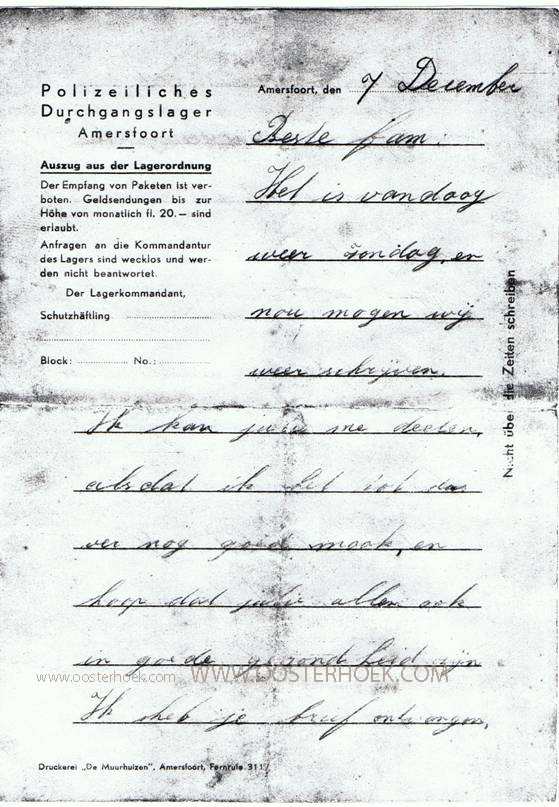 Polizeiliches
Durchgangslager
Amersfoort
Auszug aus der Lagerordnung
Der Empfang von Paketen ist ver-
boten. Geldsendungen bis zur
Höhe von monatlich fl. 20.— sind
erlaubt.
Anfragen an die Kommandantur
des Lagers sind wecklos und wer-
den nicht beantwortet.
Der Lagerkommandant,
Schutzhäftling
Block: No.:
Amersfoort, den 7 December
Beste fam.
Het is vandaag
weer zondag, en
nou mogen wij
weer schrijven.
Nicht über die Zeiten schreiben
Ik kan jullie me deelen,
alsdat ik het tot dus
ver nog goed maak, en
hoop dat jullie allen ook
in goede gezondheid zijn
Ik heb je brief ontvangen,
www.oosterhoek.com
WWW.OOSTERHOEK.COM
Druckerei „De Muurhuizen", Amersfoort, Fernrufe 311